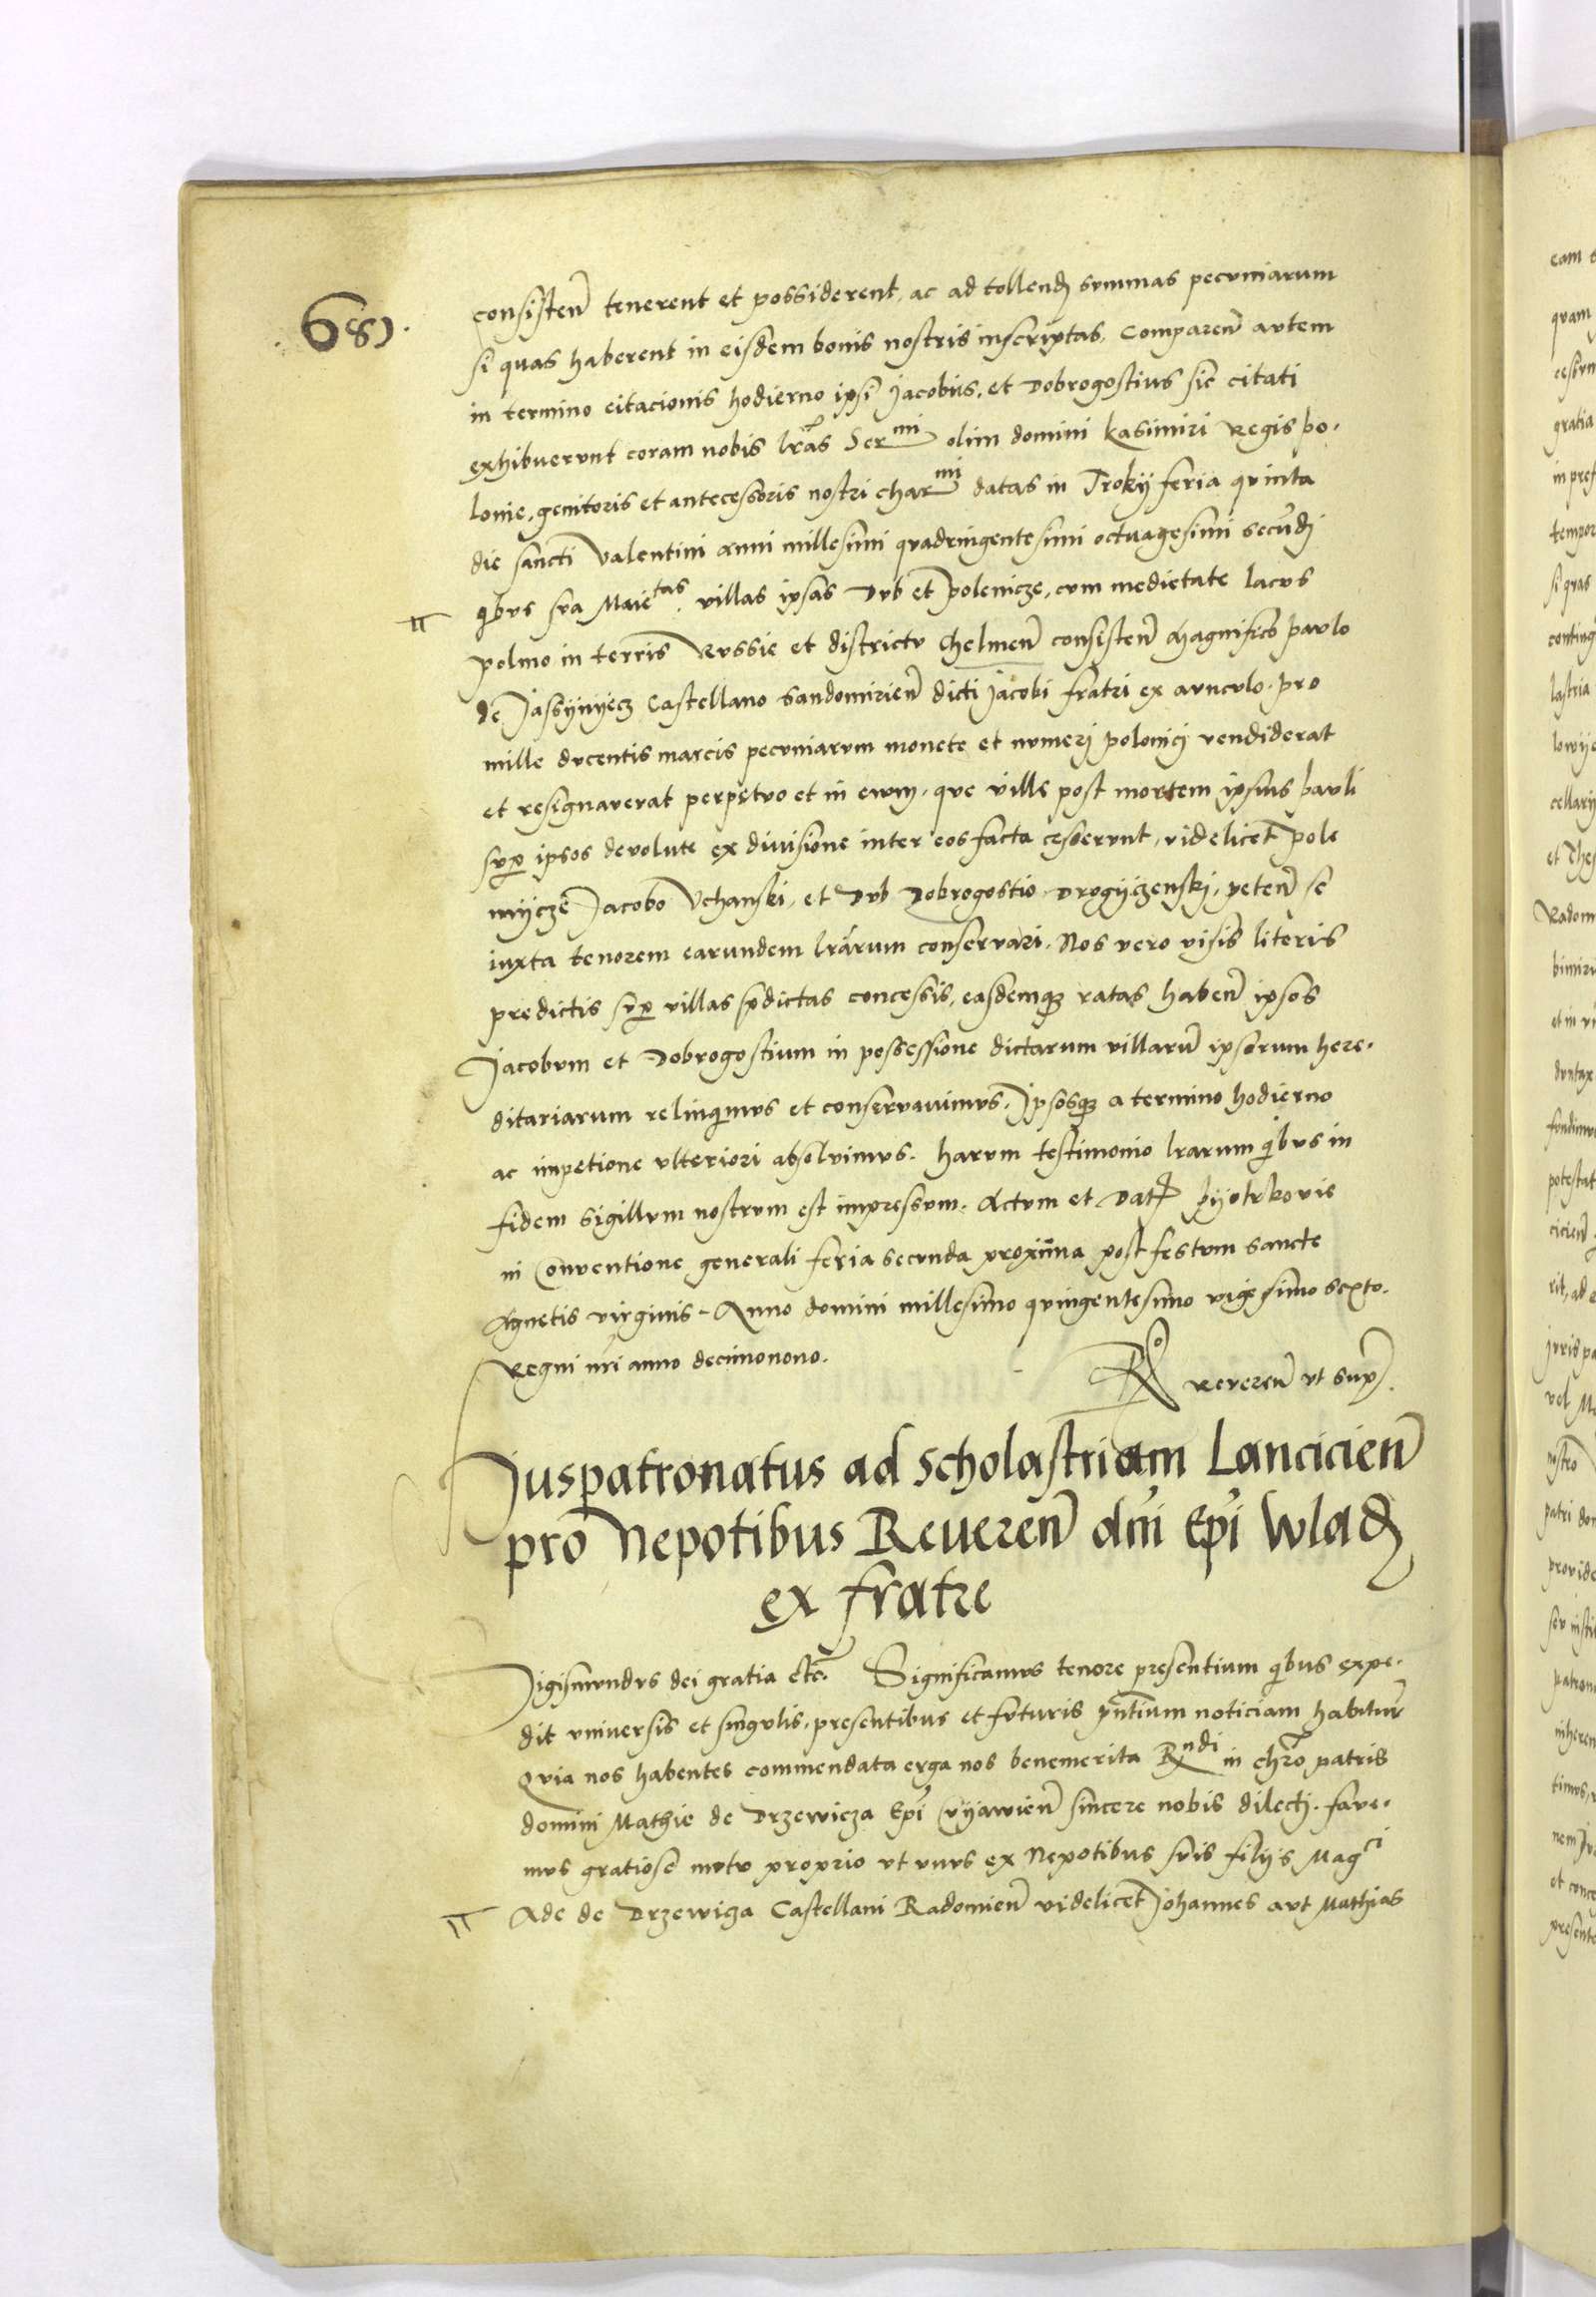 681.
consisten̄ tenerent et possiderent, ac ad tollend̨ summas pecuniarum
si quas haberent in eisdem bonis nostris inscriptas. Comparen̄ autem
in termino citacionis hodierno ipsi Jacobus, et Dobrogostius sic citati
exhibuerunt coram nobis lr̄as Ser^mi olim domini Kasimiri Regis po.
lonie, genitoris et antecessoris nostri char^mi datas in Troky feria quinta
die sancti Valentini anni millesimi quadringentesimi octuagesimi secūdi
qibus sua Maie^tas villas ipsas Dub et polenicze, cum medietate lacus
polmo in terris Russie et districtu Chelmen̄ consisten̄ Magnifico paulo
de Jassyenyecz Castellano Sandomirien̄ dicti Jacobi fratri ex avunculo. pro
mille ducentis marcis pecuniarum monete et numeri polonici vendiderat
et resignauerat perpetuo et in eum, que ville post mortem ipsius pauli
sup̄ ipsos deuolute ex diuisione inter eos facta cesserunt, videlicet pole
nycze Jacobo Vchanski, et Dub Dobrogostio Drogyczenski, peten̄ se
iuxta tenorem earundem lr̄arum conseruari. Nos vero visis literis
predictis sup̄ villas p̄dictas concessis, easdemq₃ ratas haben̄ ipsos
Jacobum et Dobrogostium in possessione dictarum villarū ipsorum here.
ditariarum relinqimus et conseruauimus. Ipsosq₃ a termino hodierno
ac impetione vlteriori absoluimus. Harum testimonio lrarum qibus in
fidem sigillum nostrum est impressum. Actum et Dat̄ pyotrkouie
in Conuentione generali feria secunda proxima post festum sancte
Agnetis virginis. Anno domini millesimo quingentesimo vigesimo sexto.
Regni nr̄i anno decimonono.
R^o Reueren̄ vt sup̄.
Juspatronatus ad Scholastriam Lancicien̄
pro Nepotibus Reueren̄ dn̄i Ep̄i Wlad̨
ex fratre
Sigismundus dei gratia etc̄. Significamus tenore presentium qibus expe.
dit vniuersis et singulis, presentibus et futuris p̄ntium noticiam habitur̄
Quia nos habentes commendata erga nos benemerita R^ndi in chr̄o patris
domini Mathie de Drzewicza Ep̄i Cuyawien̄ sincere nobis dilecti. faue.
mus gratiose motu proprio vt vnus ex Nepotibus suis filiis Mag^ci
Ade de Drzewicza Castellani Radomien̄ videlicet Johannes aut Mathias